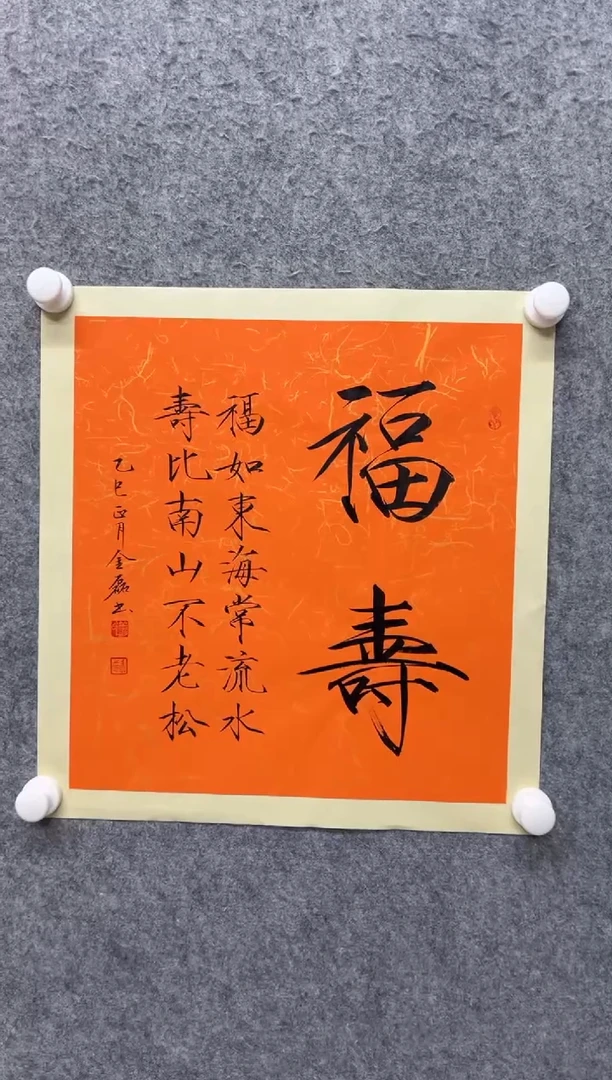 福壽
福如東海常流水
壽比南山不老松
乙巳正月金磊书